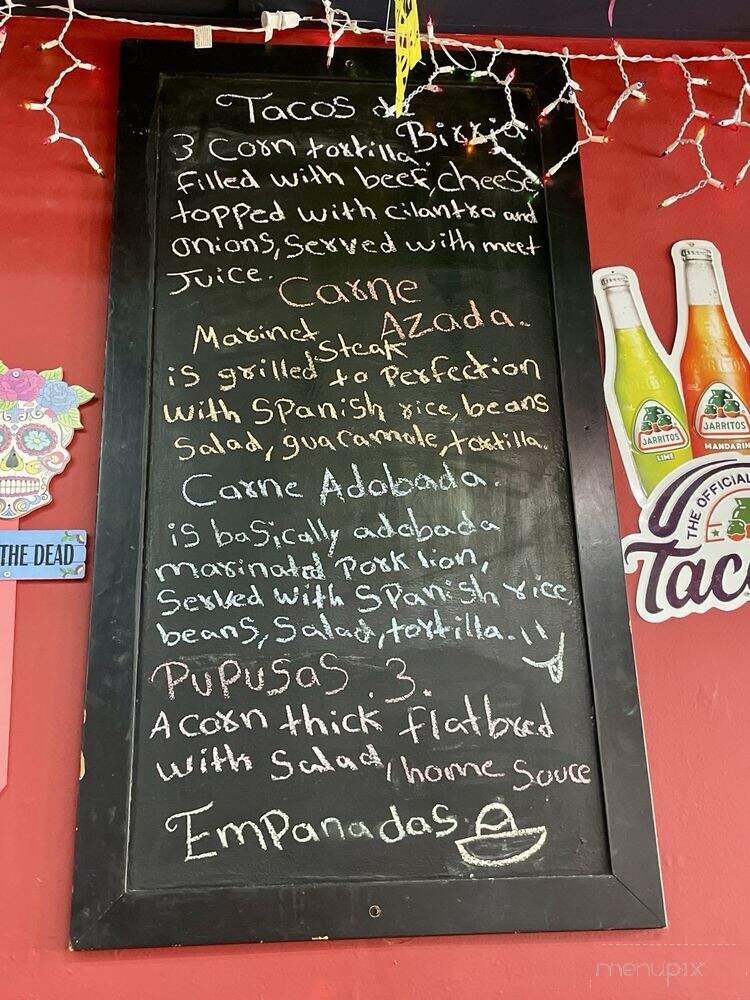 Tacos de
Birria
3 Corn tortilla
filled with beef, cheese
topped with cilantro and
onions, Served with meet
Juice.
Carne
AZada.
Marinet
Steak
is grilled to Perfection
with SPanish rice, beans
Salad, guacamole, tortilla.
Carne Adobada.
is basically adobada
marinated Pork lion,
Served with SPanish rice,
beans, Salad, tortilla.
PuPuSaS .3.
A corn thick flatbred
with Salad, home Souce
EmPanadas
THE DEAD
JARRITOS
LIME
JARRITOS
MANDARIN
THE OFFICIAL
Tac
menupix